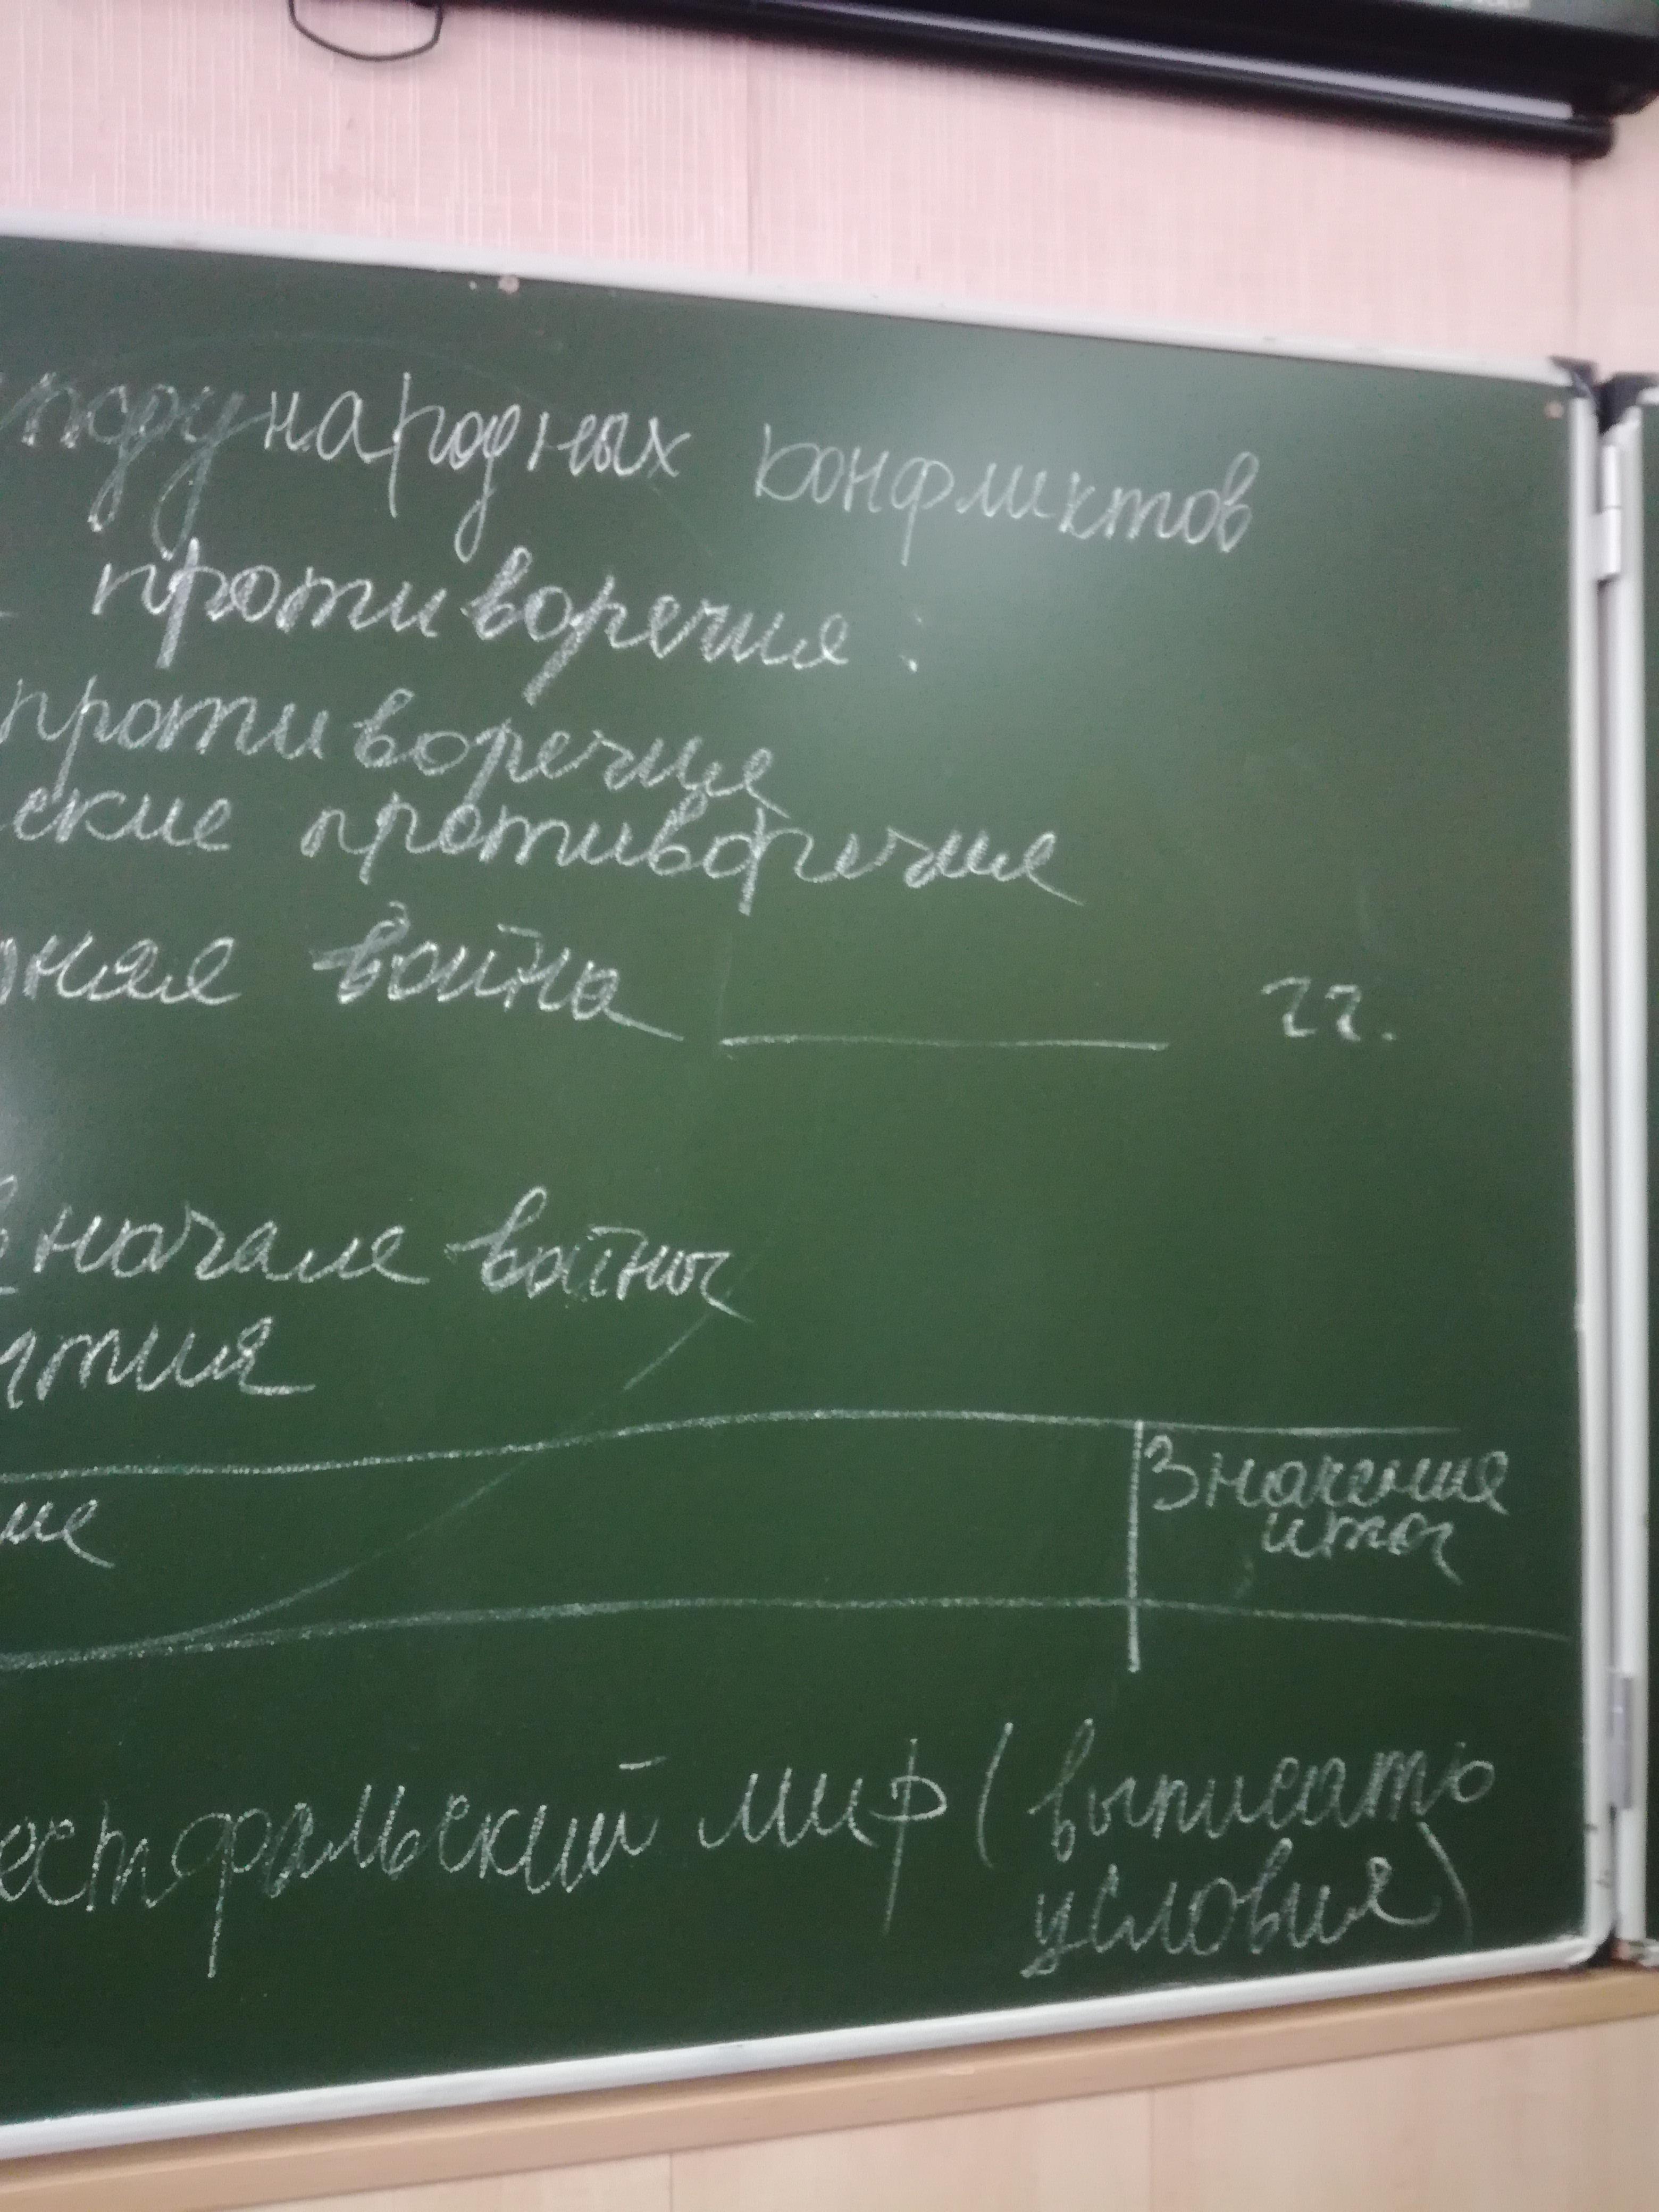 международных конфликтов
противоречия:
противоречия
ские противоречия
ная война ______ гг.
начале войны
ытия
ие
Значение
иты
естфальский мир (выписать
условия)